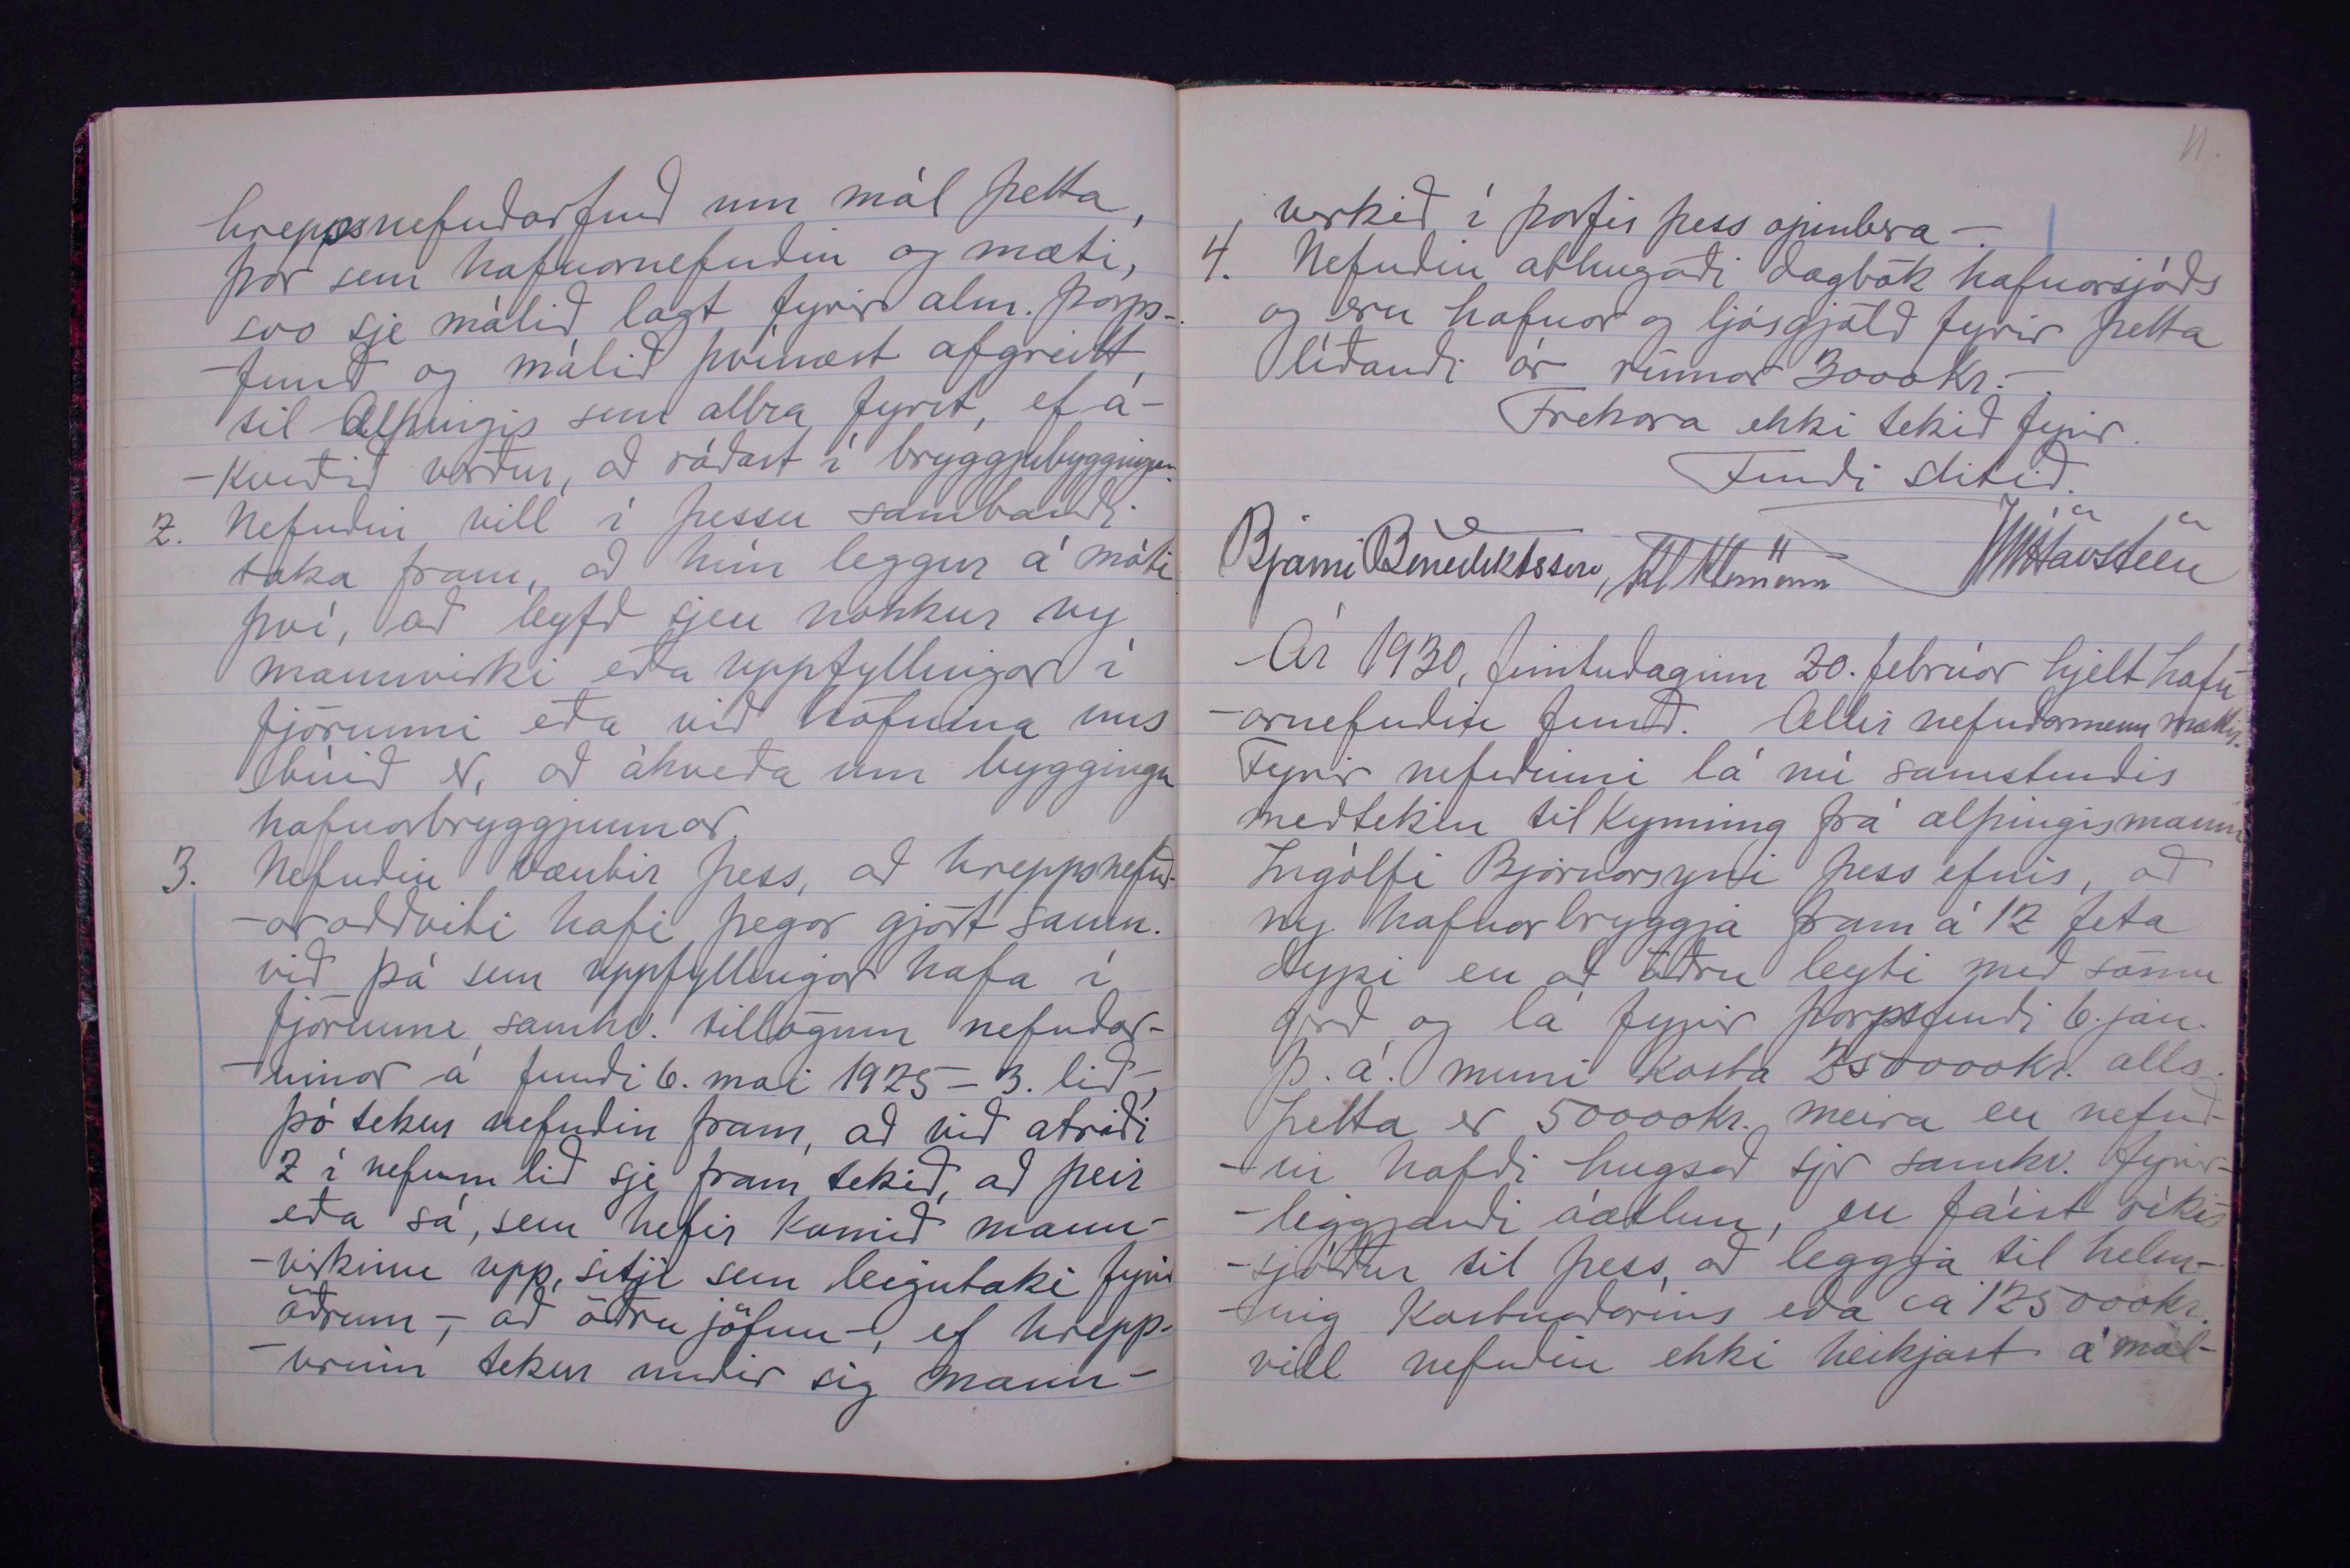 hreppsnefndarfund um mál þetta,
þar sem hafnarnefndin og mæti,
svo sje málið lagt fyrir alm. þorps-
-fund og málið þvínæst afgreitt
til Alþingis sem allra fyrst, ef á-
-kveðið verður, að ráðast í bryggjubygginguna.
2. Nefndin vill í þessu sambandi
taka fram, að hún leggur á móti
því, að leyfð sjeu nokkur ný
mannvirki eða uppfyllingar í
fjörunni eða við höfnina uns
búið er, að ákveða um byggingu
hafnarbryggjunnar.
3. Nefndin væntir þess, að hreppsnefnd-
-aroddviti hafi þegar gjört samn.
við þá sem uppfyllingar hafa í
fjörunni samkv. tillögum nefndar-
-innar á fundi 6. mai 1925 - 3. lið -,
þó tekur nefndin fram, að við atriði
2 í nefnum lið sje fram tekið, að þeir
eða sá, sem hefir komið mann-
-virkinu upp, sitji sem leigutaki fyrir
öðrum, - að öðru jöfnu -, ef hrepp-
-urinn tekur undir sig mann-
11.
virkið í þarfir þess opinbera -.
4. Nefndin athugaði dagbók hafnarsjóðs
og eru hafnar og ljósgjöld fyrir þetta
líðandi ár rúmar 3000 kr. -
Frekara ekki tekið fyrir.
Fundi slitið.
Bjarni Benediktsson, Kl Klemenn JHavsteen
Ár 1930, fimtudaginn 20. febrúar hjelt hafn-
-arnefndin fund. Allir nefndarmenn mættir.
Fyrir nefndinni lá nú samstundis
meðtekin tilkynning frá alþingismanni
Ingólfi Bjarnarsyni þess efnis, að
ný hafnarbryggja fram á 12 feta
dýpi en að öðru leyti með sömu
gerð og lá fyrir þorpsfundi 6. jan.
þ. á. muni kosta 250000 kr. alls.
Þetta er 50000 kr. meira en nefnd-
-in hafði hugsað sjer samkv. fyrir-
-liggjandi áætlun, en fáist ríkis-
-sjóður til þess, að leggja til helm-
-ing kostnaðarins eða ca 125000 kr.
vill nefndin ekki heikjast á mál-